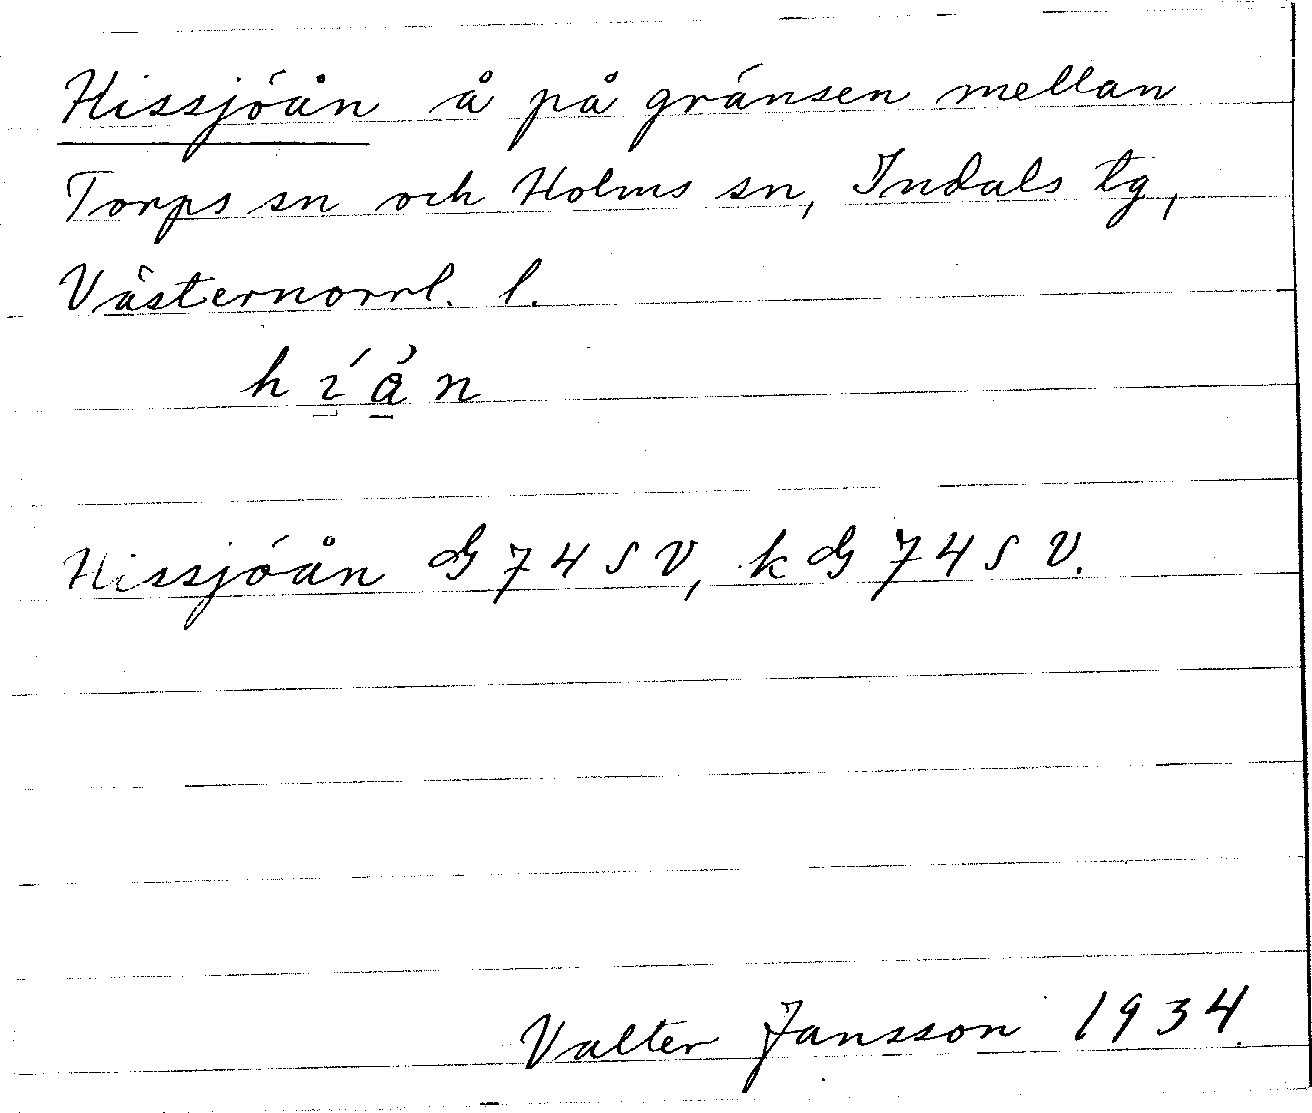 Hissjöån å på gränsen mellan
Torps sn och Holms sn, Indals tg,
Västernorrl. l.
h í å̀ n
Hissjöån G 74 S V, k G 74 S V.
Valter Jansson 1934.